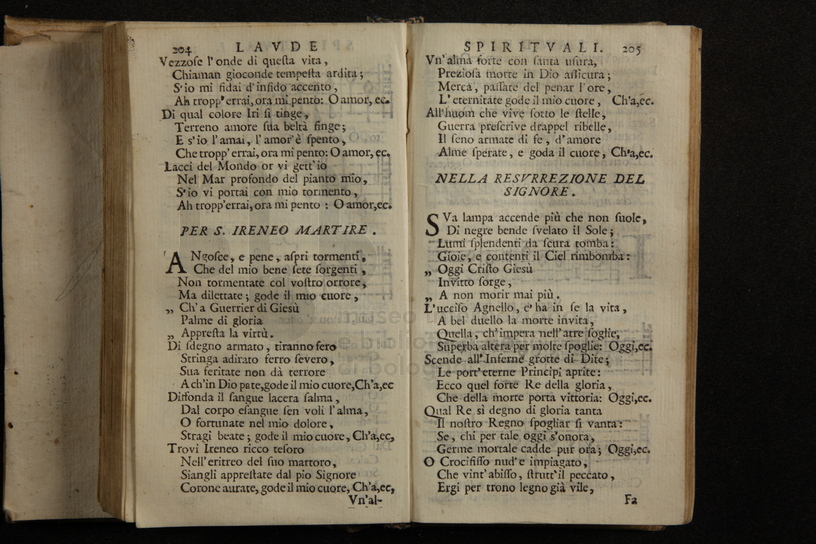 204 LAVDE
Vezzose l'onde di questa vita,
Chiaman gioconde tempesta ardita;
S'io mi fidai d'infido accento,
Ah tropp'errai, ora mi pento: O amor, ec.
Di qual colore Iri si tinge,
Terreno amore sua beltà finge;
E s'io l'amai, l'amor'è spento,
Che tropp'errai, ora mi pento: O amor, ec.
Lacci del Mondo or vi gett'io
Nel Mar profondo del pianto mio,
S'io vi portai con mio tormento,
Ah tropp'errai, ora mi pento: O amor, ec.
PER S. IRENEO MARTIRE.
ANgosce, e pene, aspri tormenti,
Che del mio bene sete sorgenti,
Non tormentate col vostro orrore,
Ma dilettate; gode il mio cuore,
„ Ch'a Guerrier di Giesù
Palme di gloria
„ Appresta la virtù.
Di sdegno armato, tiranno fero
Stringa adirato ferro severo,
Sua feritate non dà terrore
A ch'in Dio pate, gode il mio cuore, Ch'a, ec
Diffonda il sangue lacera salma,
Dal corpo esangue sen voli l'alma,
O fortunate nel mio dolore,
Stragi beate; gode il mio cuore, Ch'a, ec,
Trovi Ireneo ricco tesoro
Nell'eritreo del suo martoro,
Siangli apprestate dal pio Signore
Corone aurate, gode il mio cuore, Ch'a, ec,
Vn'al-
SPIRITVALI. 205
Vn'alma forte con santa usura,
Preziosa morte in Dio assicura;
Mercà, passate del penar l'ore,
L'eternitate gode il mio cuore, Ch'a, ec.
All'huom che vive sotto le stelle,
Guerra prescrive drappel ribelle,
Il seno armate di fe, d'amore
Alme sperate, e goda il cuore, Ch'a, ec.
NELLA RESVRREZIONE DEL
SIGNORE.
SVa lampa accende più che non suole,
Di negre bende svelato il Sole;
Lumi splendenti da scura tomba:
Gioie, e contenti il Ciel rimbomba:
„ Oggi Cristo Giesù
Invitto sorge,
„ A non morir mai più.
L'ucciso Agnello, c'ha in se la vita,
A bel duello la morte invita,
Quella, ch'impera nell'atre soglie,
Superba altera per molte spoglie: Oggi, ec.
Scende all'Inferne grotte di Dite;
Le port'eterne Principi aprite:
Ecco quel forte Re della gloria,
Che della morte porta vittoria: Oggi, ec.
Qual Re sì degno di gloria tanta
Il nostro Regno spogliar si vanta:
Se, chi per tale oggi s'onora,
Germe mortale cadde pur ora; Oggi, ec.
O Crocifisso nud'e impiagato,
Che vint'abisso, strutt'il peccato,
Ergi per trono legno già vile,
Fa